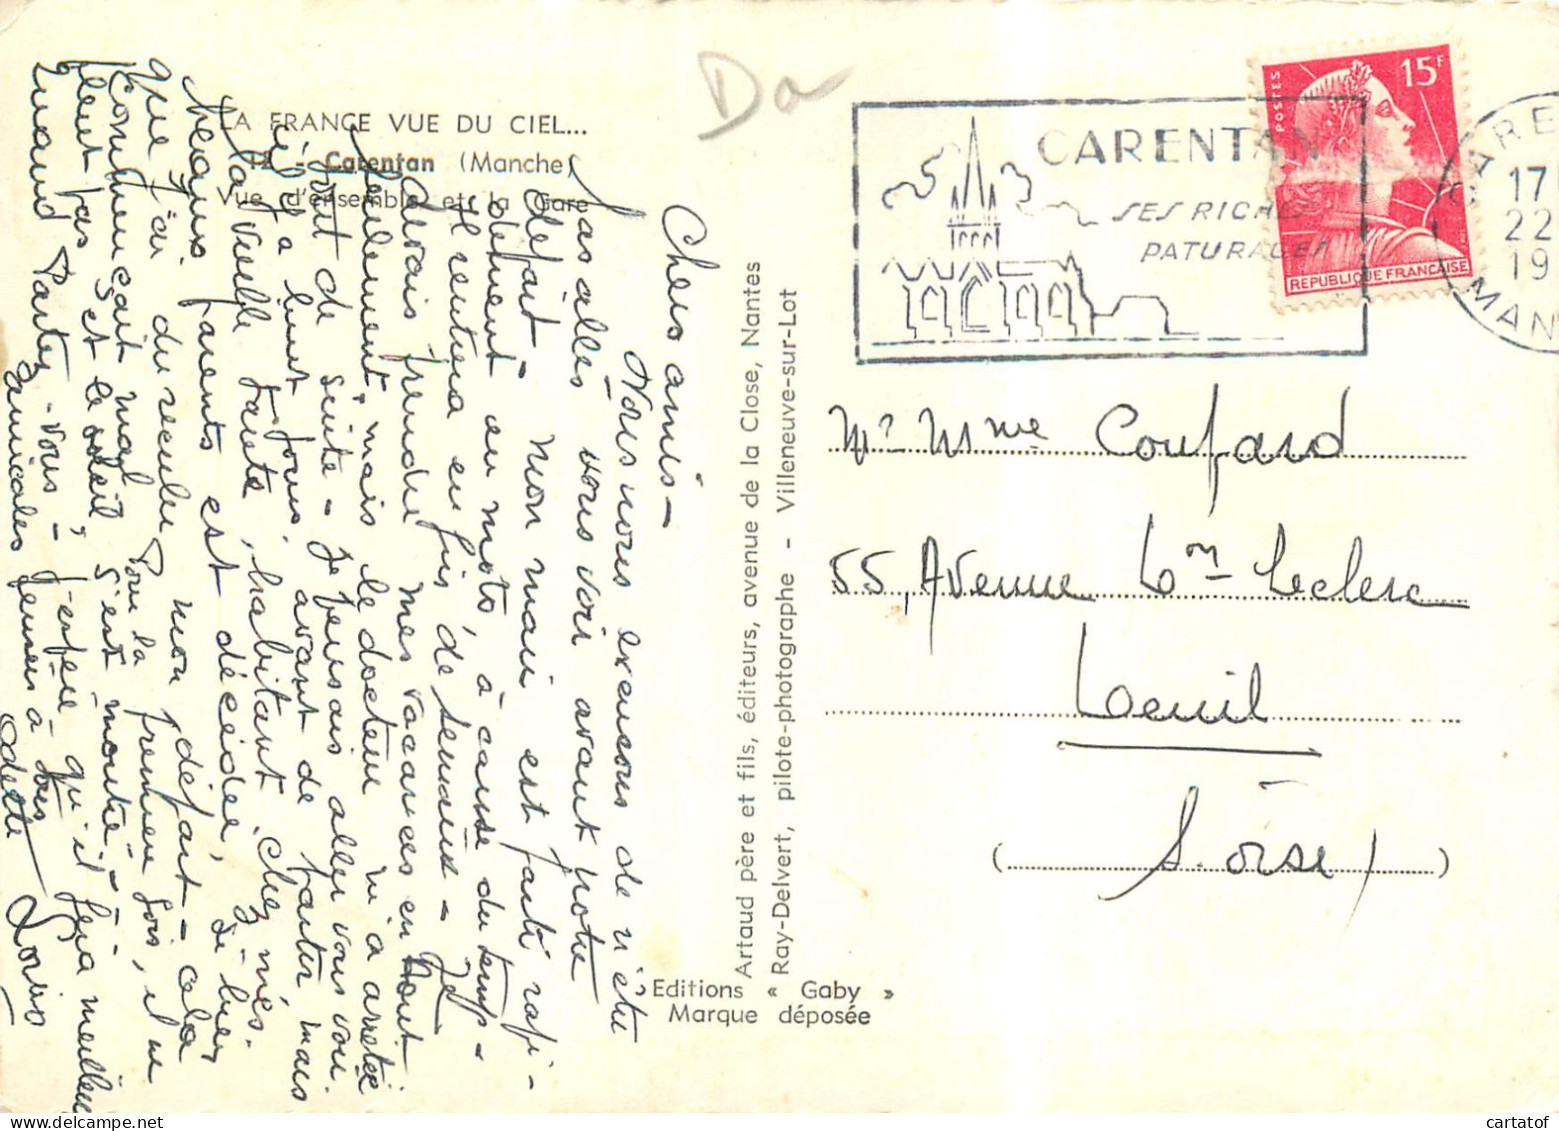 Da
LA FRANCE VUE DU CIEL...
12 - Carentan (Manche)
Vue d'ensemble et la Gare
CARENTAN
SES RICHES
PATURAGES
POSTES
15F
REPUBLIQUE FRANÇAISE
CARE
17
22
19
MAN
Chers amis -
Nous nous excusons de n'être
pas allés vous voir avant notre
départ - Mon mari est parti rapi-
dement en moto, à cause du temps -
Il rentrera en fin de semaine - Je
devrais prendre mes vacances en Août
seulement, mais le docteur m'a arrêtée
tout de suite - Je pensais aller vous voir
il y a huit jours, avant de partir mais
la vieille tante, habitant chez mes
parents est décédée,
que j'ai du reculer mon départ - cela
commençait mal. Pour la première fois, il ne
pleut pas et le soleil, s'est montré -
Quand Partez-vous - J'espère qu'il fera meilleur
amicales pensées à tous
Odette
Artaud père et fils, éditeurs, avenue de la Close, Nantes
Ray-Delvert, pilote-photographe - Villeneuve-sur-Lot
Editions « Gaby »
Marque déposée
Mr Mme Coufard
55, Avenue Gm Leclerc
Creil
(S. Oise)
cartatof